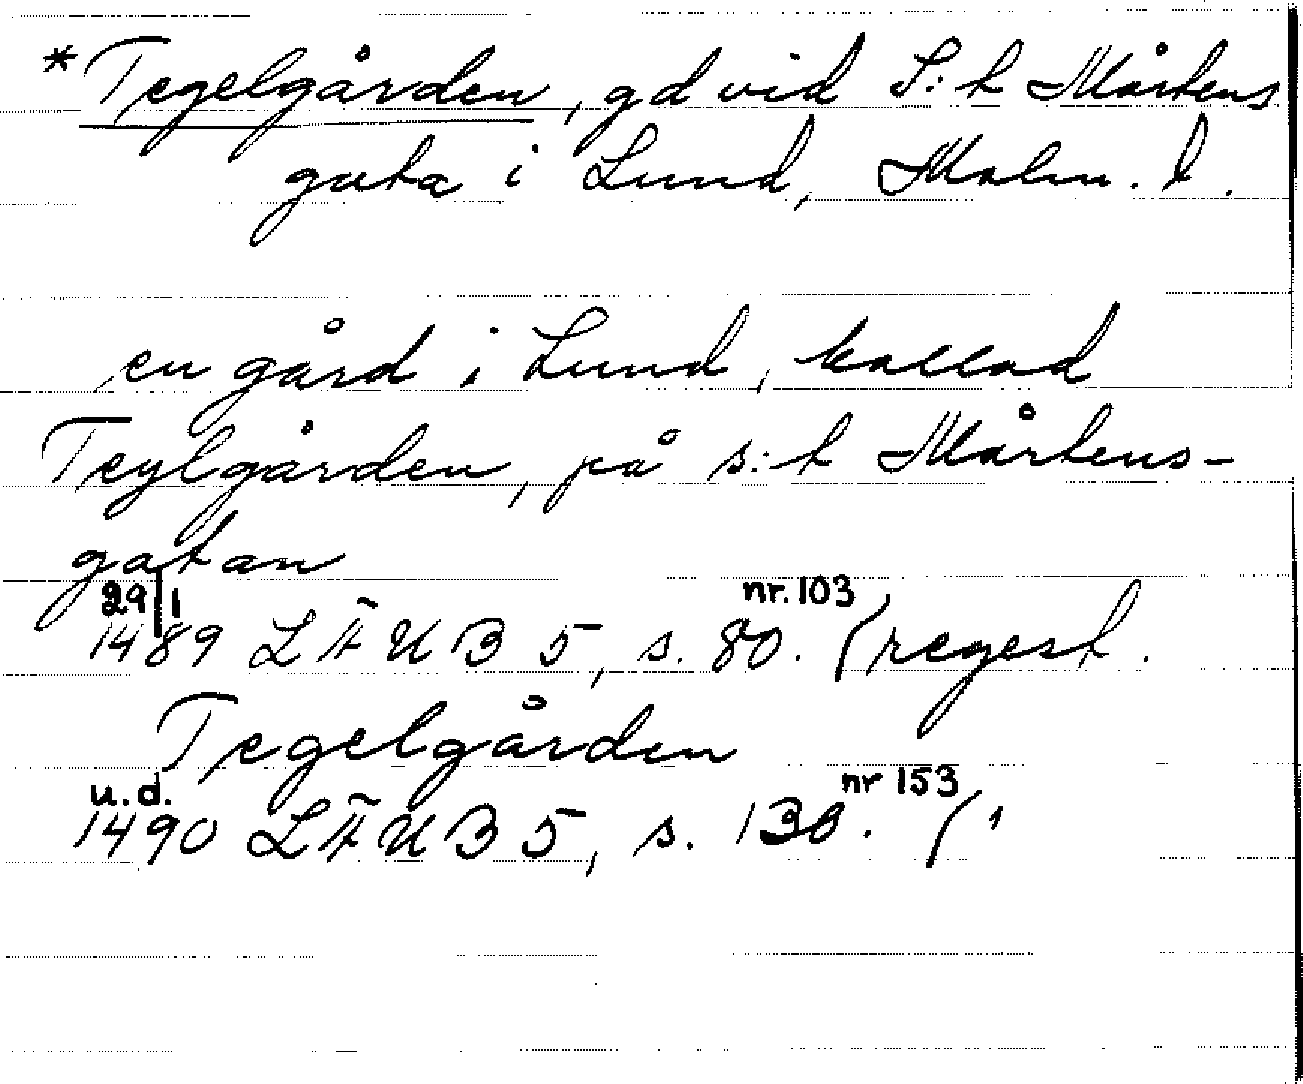 * Tegelgården, gd vid S:t Mårtens
gata i Lund, Malm. l.
en gård i Lund, kallad
Teylgården, på s:t Mårtens-
gatan
29/1 nr. 103
1489 LÄUB 5, s. 80. (regest.
Tegelgården
u.d. nr 153
1490 LÄUB 5, s. 130. ("